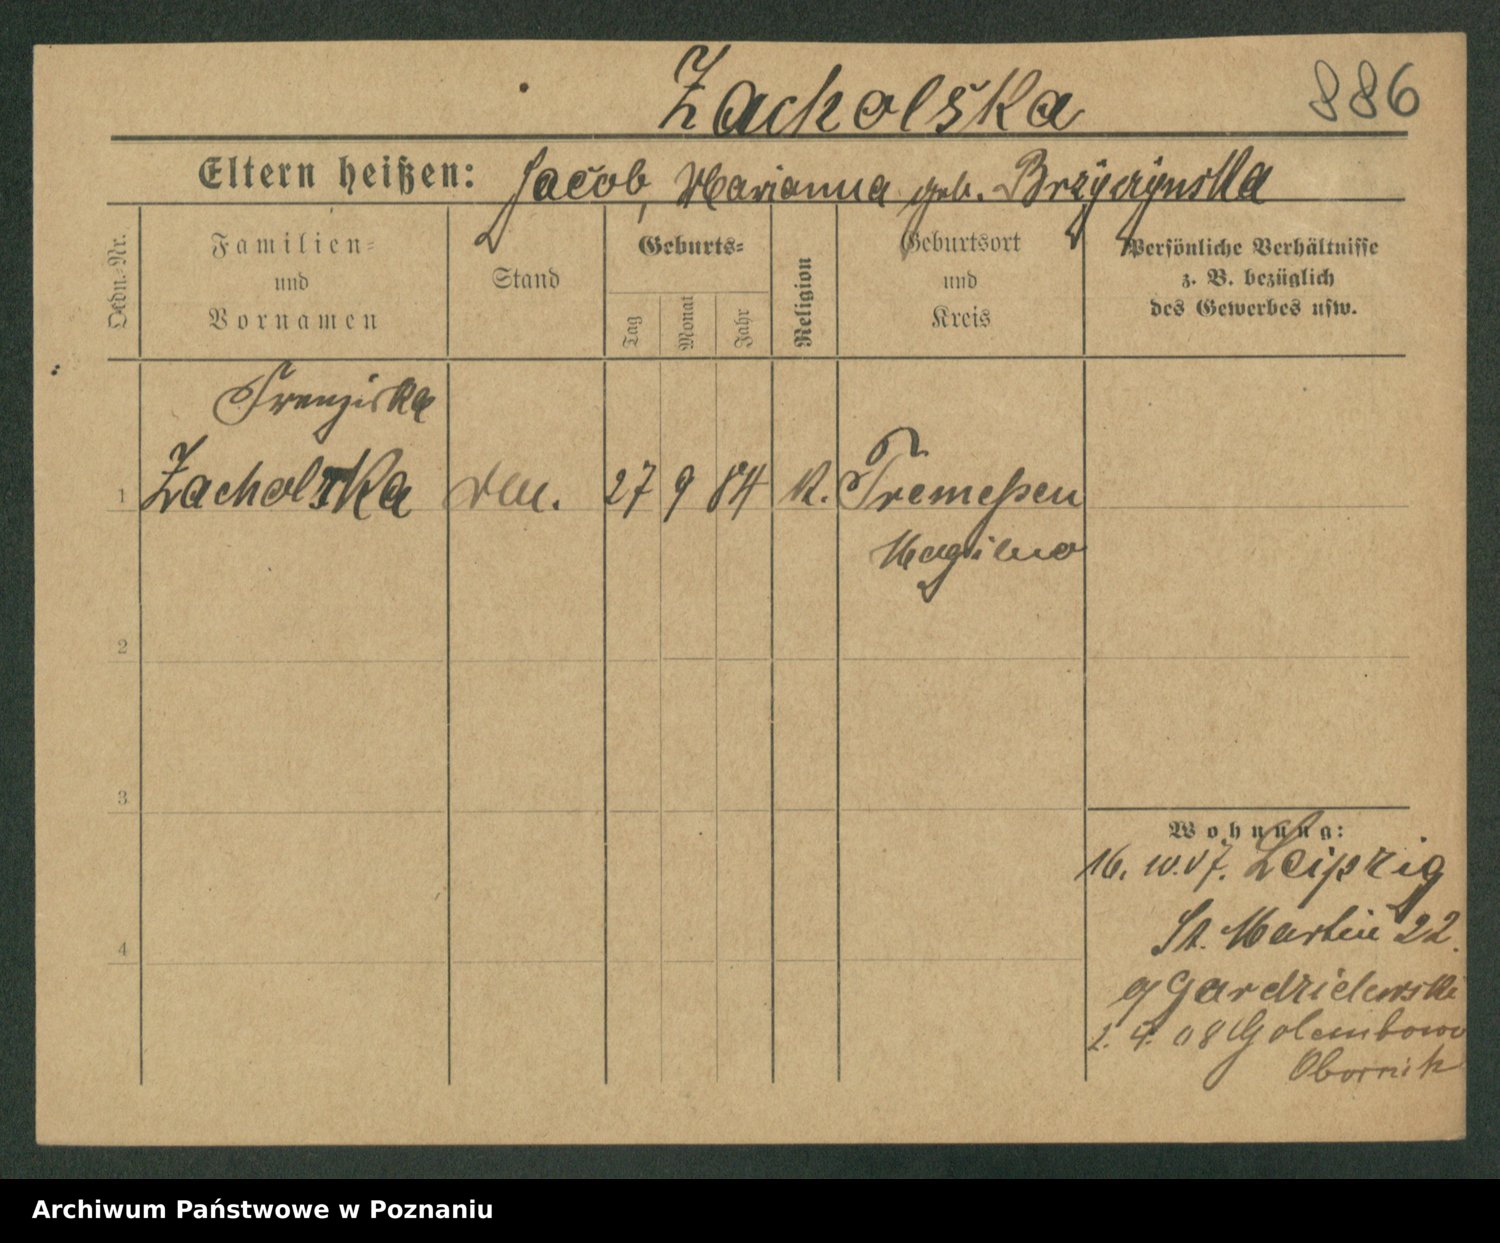 Zacholska
886
Eltern heißen: Jacob, Marianna geb.
Ordn.-Nr.
Familien-
und
Vornamen
Stand
Geburts-
Tag
Monat
Jahr
Religion
Geburtsort
und
Kreis
Persönliche Verhältnisse
z. B. bezüglich
des Gewerbes usw.
Franziska
1 Zacholska 27 9 84 K. Tremeßen
Mogilno
2
3
4
Wohnung:
Leipzig
St. Martin 22.
Gardzielewski
2. 4. 08 Golembowo
Obornik
Archiwum Państwowe w Poznaniu